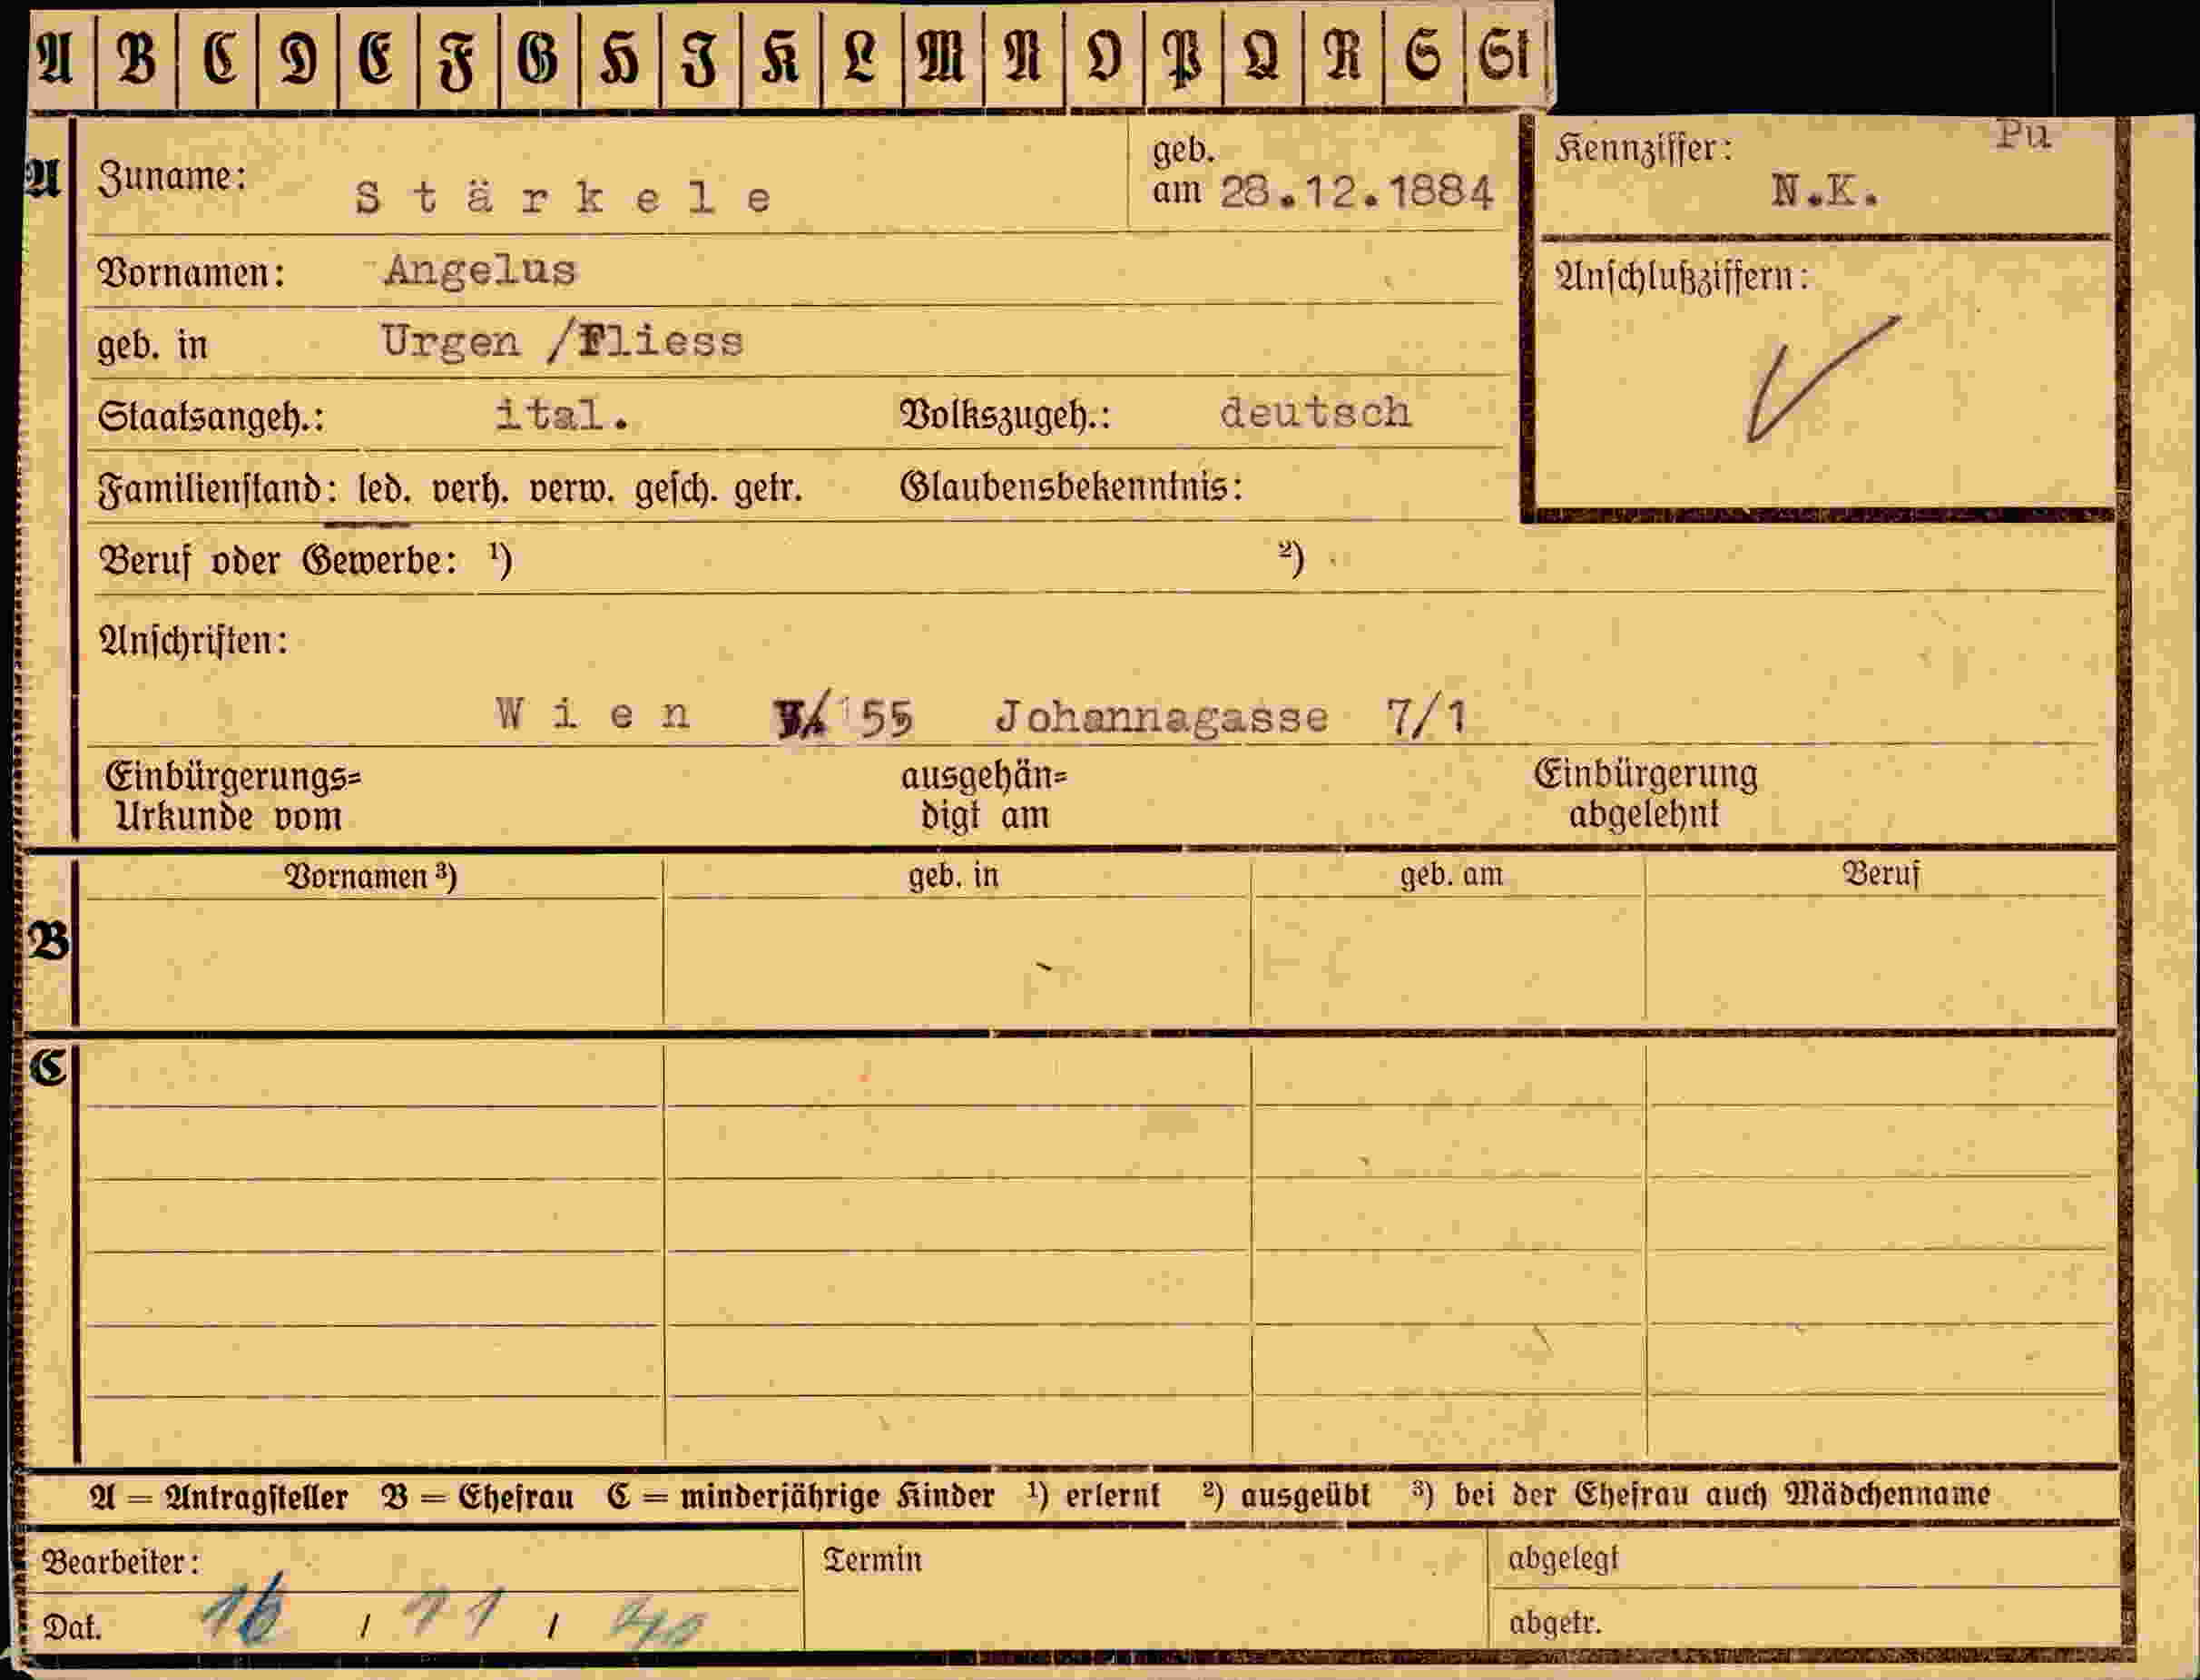 A B C D E F G H I K L M N O P Q R S St
A Zuname: Stärkele geb. am 28.12.1884
Kennziffer: Pu
N.K.
Vornamen: Angelus
Anschlußziffern:
geb. in Urgen /Fliess
Staatsangeh.: ital. Volkszugeh.: deutsch
Familienstand: led. verh. verw. gesch. getr. Glaubensbekenntnis:
Beruf oder Gewerbe: ¹) ²)
Anschriften:
Wien 55 Johannagasse 7/1
Einbürgerungs=
Urkunde vom
ausgehän=
digt am
Einbürgerung
abgelehnt
Vornamen ³) geb. in geb. am Beruf
B
C
A = Antragsteller B = Ehefrau C = minderjährige Kinder ¹) erlernt ²) ausgeübt ³) bei der Ehefrau auch Mädchenname
Bearbeiter: Termin abgelegt
Dat. 16 / 11 / 40 abgetr.